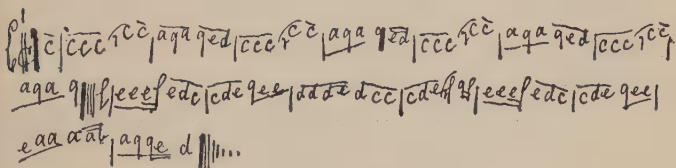 c | ccc r cc | aqa qed | ccc r cc | aqa qed | ccc r cc | aqa qed | ccc r cc |
aqa q f | eeef edc | cde qee | dddd dcc | cde | eeef edc | cde qee |
eaa aab | aqqe d